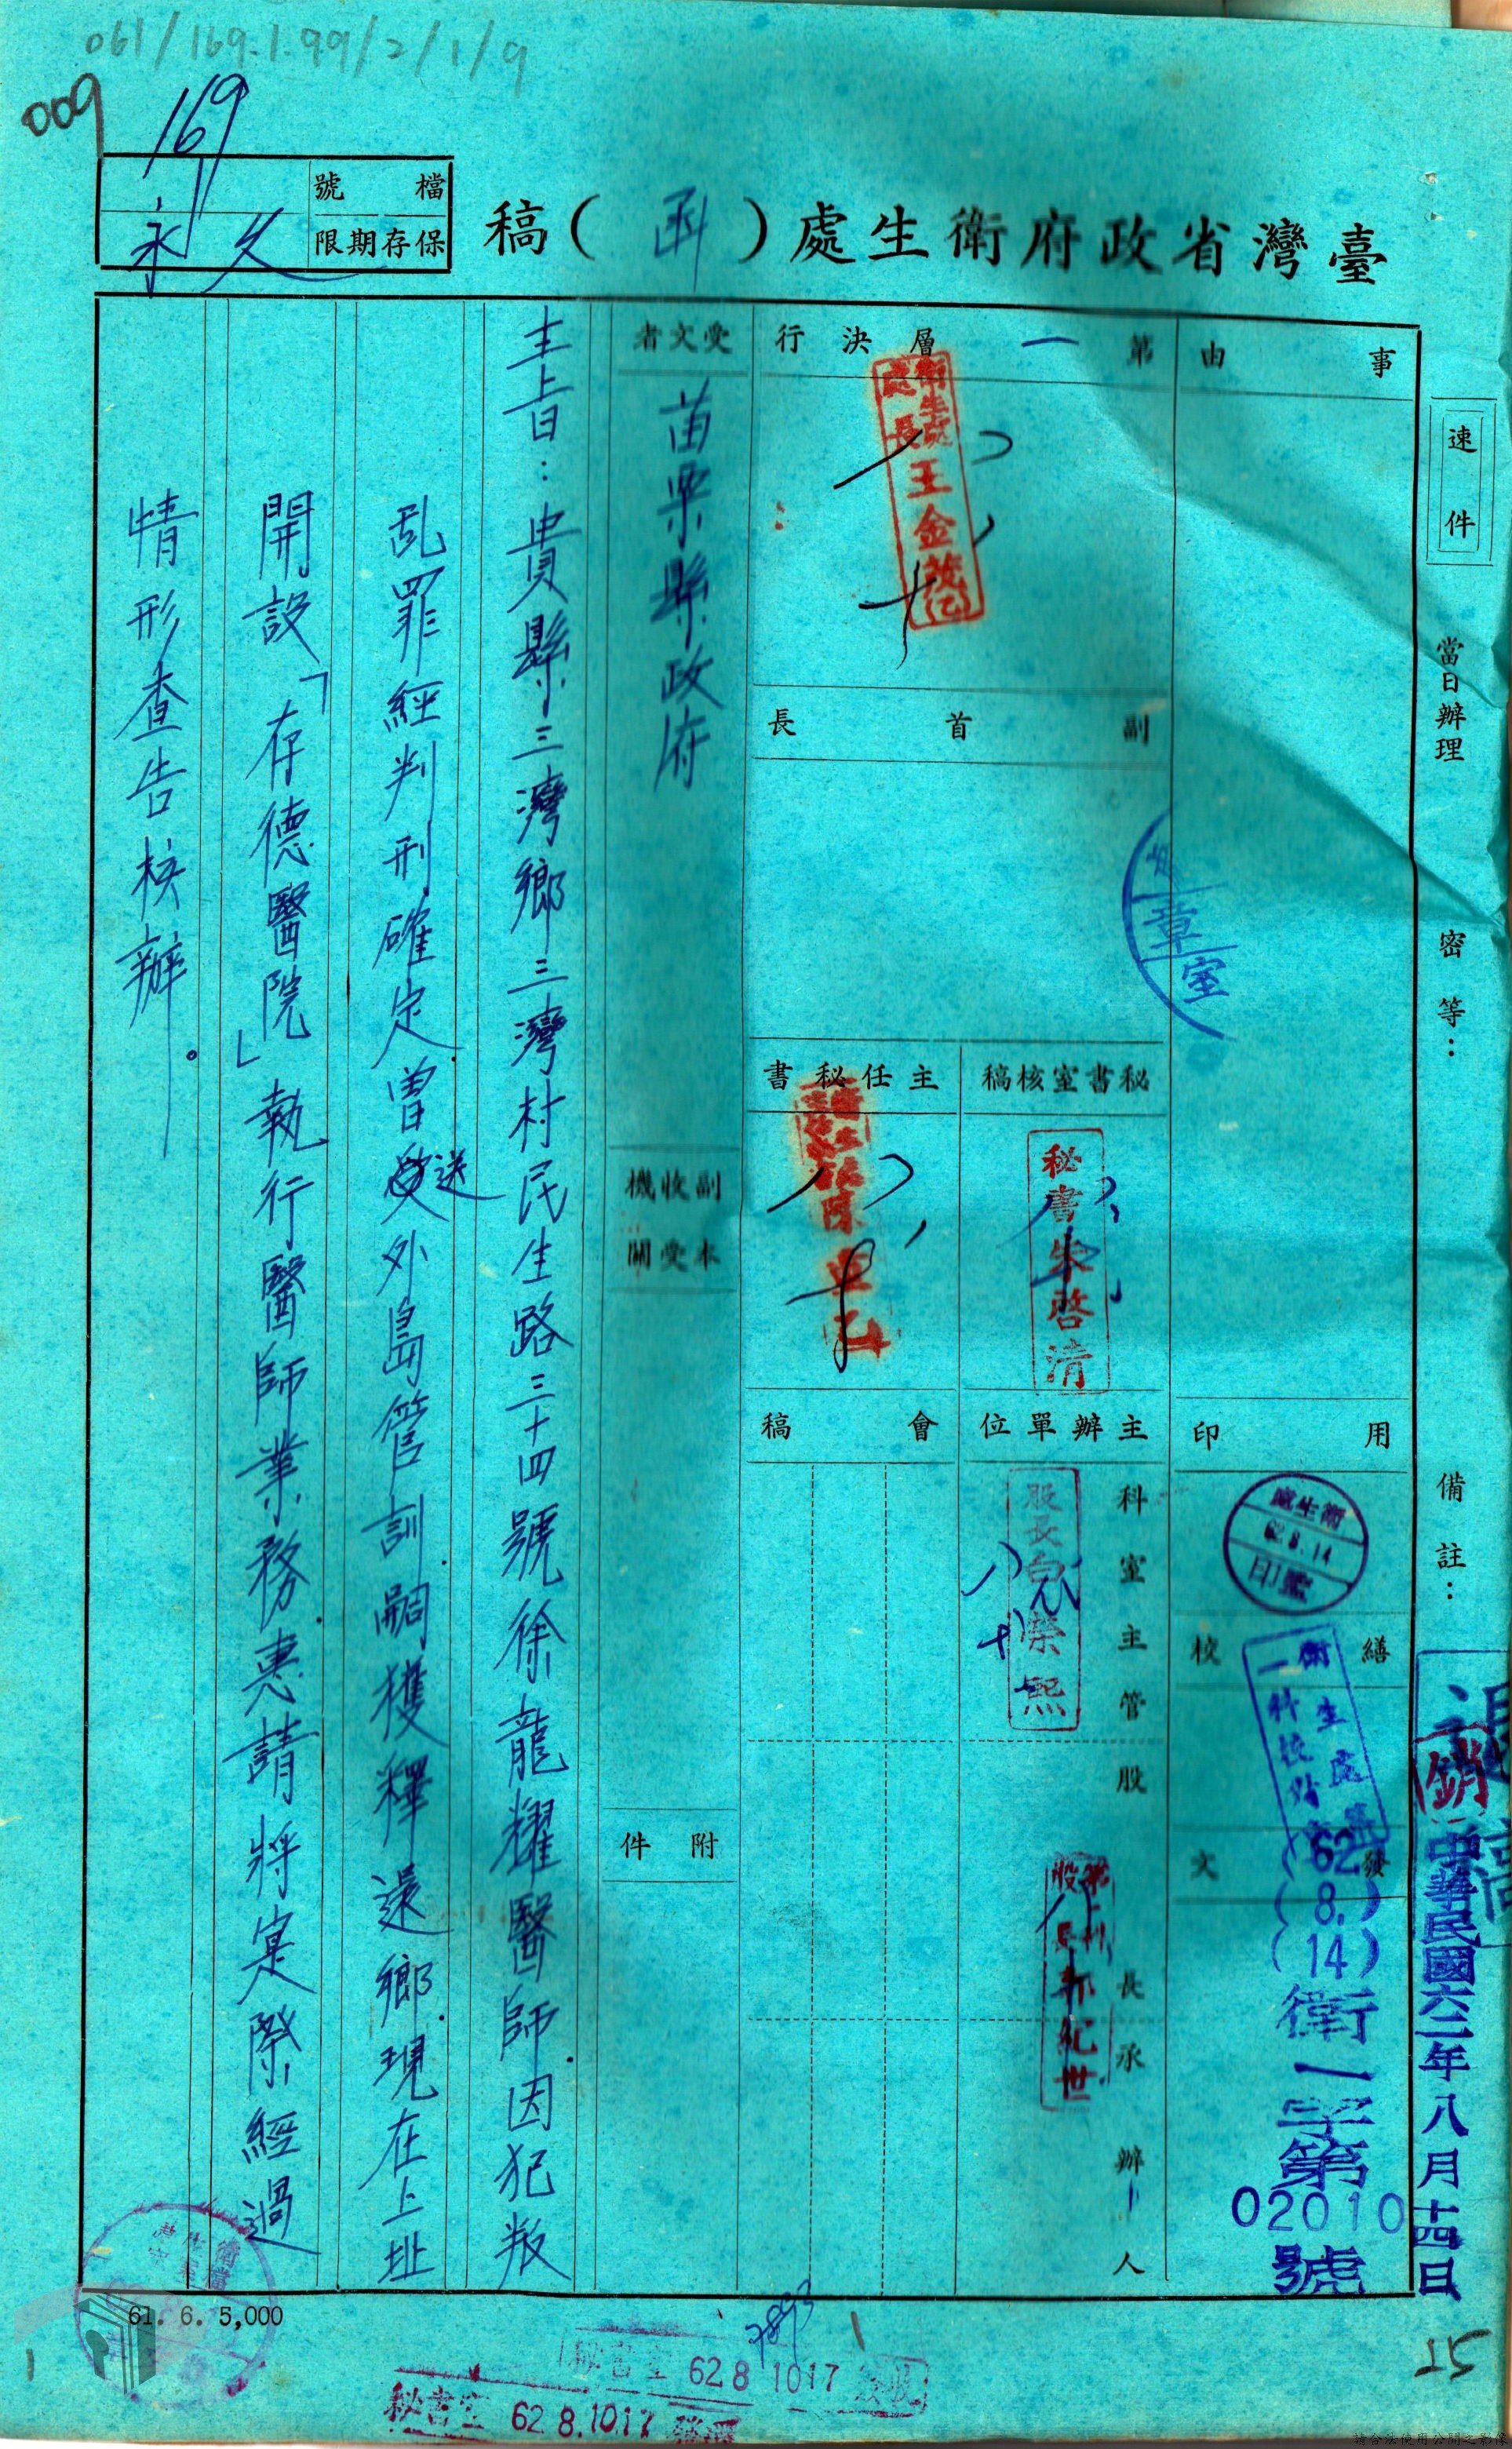 061/169.1.99/2/1/9
009
169
檔號
保存期限
永久
臺灣省政府衛生處(函)稿
速件
當日辦理
密等：
備註：
事由
第一層決行
衛生處
處長王金茂
副首長
章室
秘書室核稿
秘書朱啓清
主任秘書
主辦單位
科室主管
股長白榮熙
股長
承辦人
紀世
會稿
用印
衛生處
62.8.14
印鑑
繕校
衛生處第
一科校對
發文
(62
(8.)
(14)
衛一字第
02010
號
銷
中華民國六二年八月十四日
受文者
苗栗縣政府
副本收受機關
附件
主旨：貴縣三灣鄉三灣村民生路三十四號徐龍耀醫師.因犯叛
乱罪經判刑確定.曾送外島管訓.嗣獲釋還鄉.現在上址
開設「存德醫院」執行醫師業務.惠請將実際經過
情形查告核辦。
61. 6. 5,000
秘書室 62 8 1017
秘書室 62 8.1017
25
請合法使用公開之影像